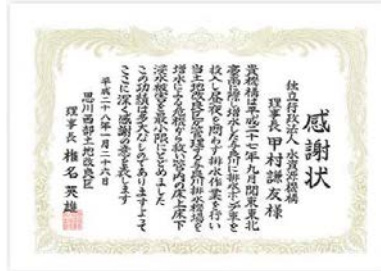 感謝状
独立行政法人 水資源機構
理事長 甲村謙友様
貴機構は平成二十七年九月関東東北
豪雨に際し増水した与良川に排水ポンプ車を
投入し昼夜を問わず排水作業を行い
当土地改良区が管理する与良川排水機場を
増水による危険から救い区内の床上床下
浸水被害を最小限にとどめました
この功績は多大なものでありますよって
ここに深く感謝の意を表します
平成二十八年一月二十六日
思川西部土地改良区
理事長 椎名英雄